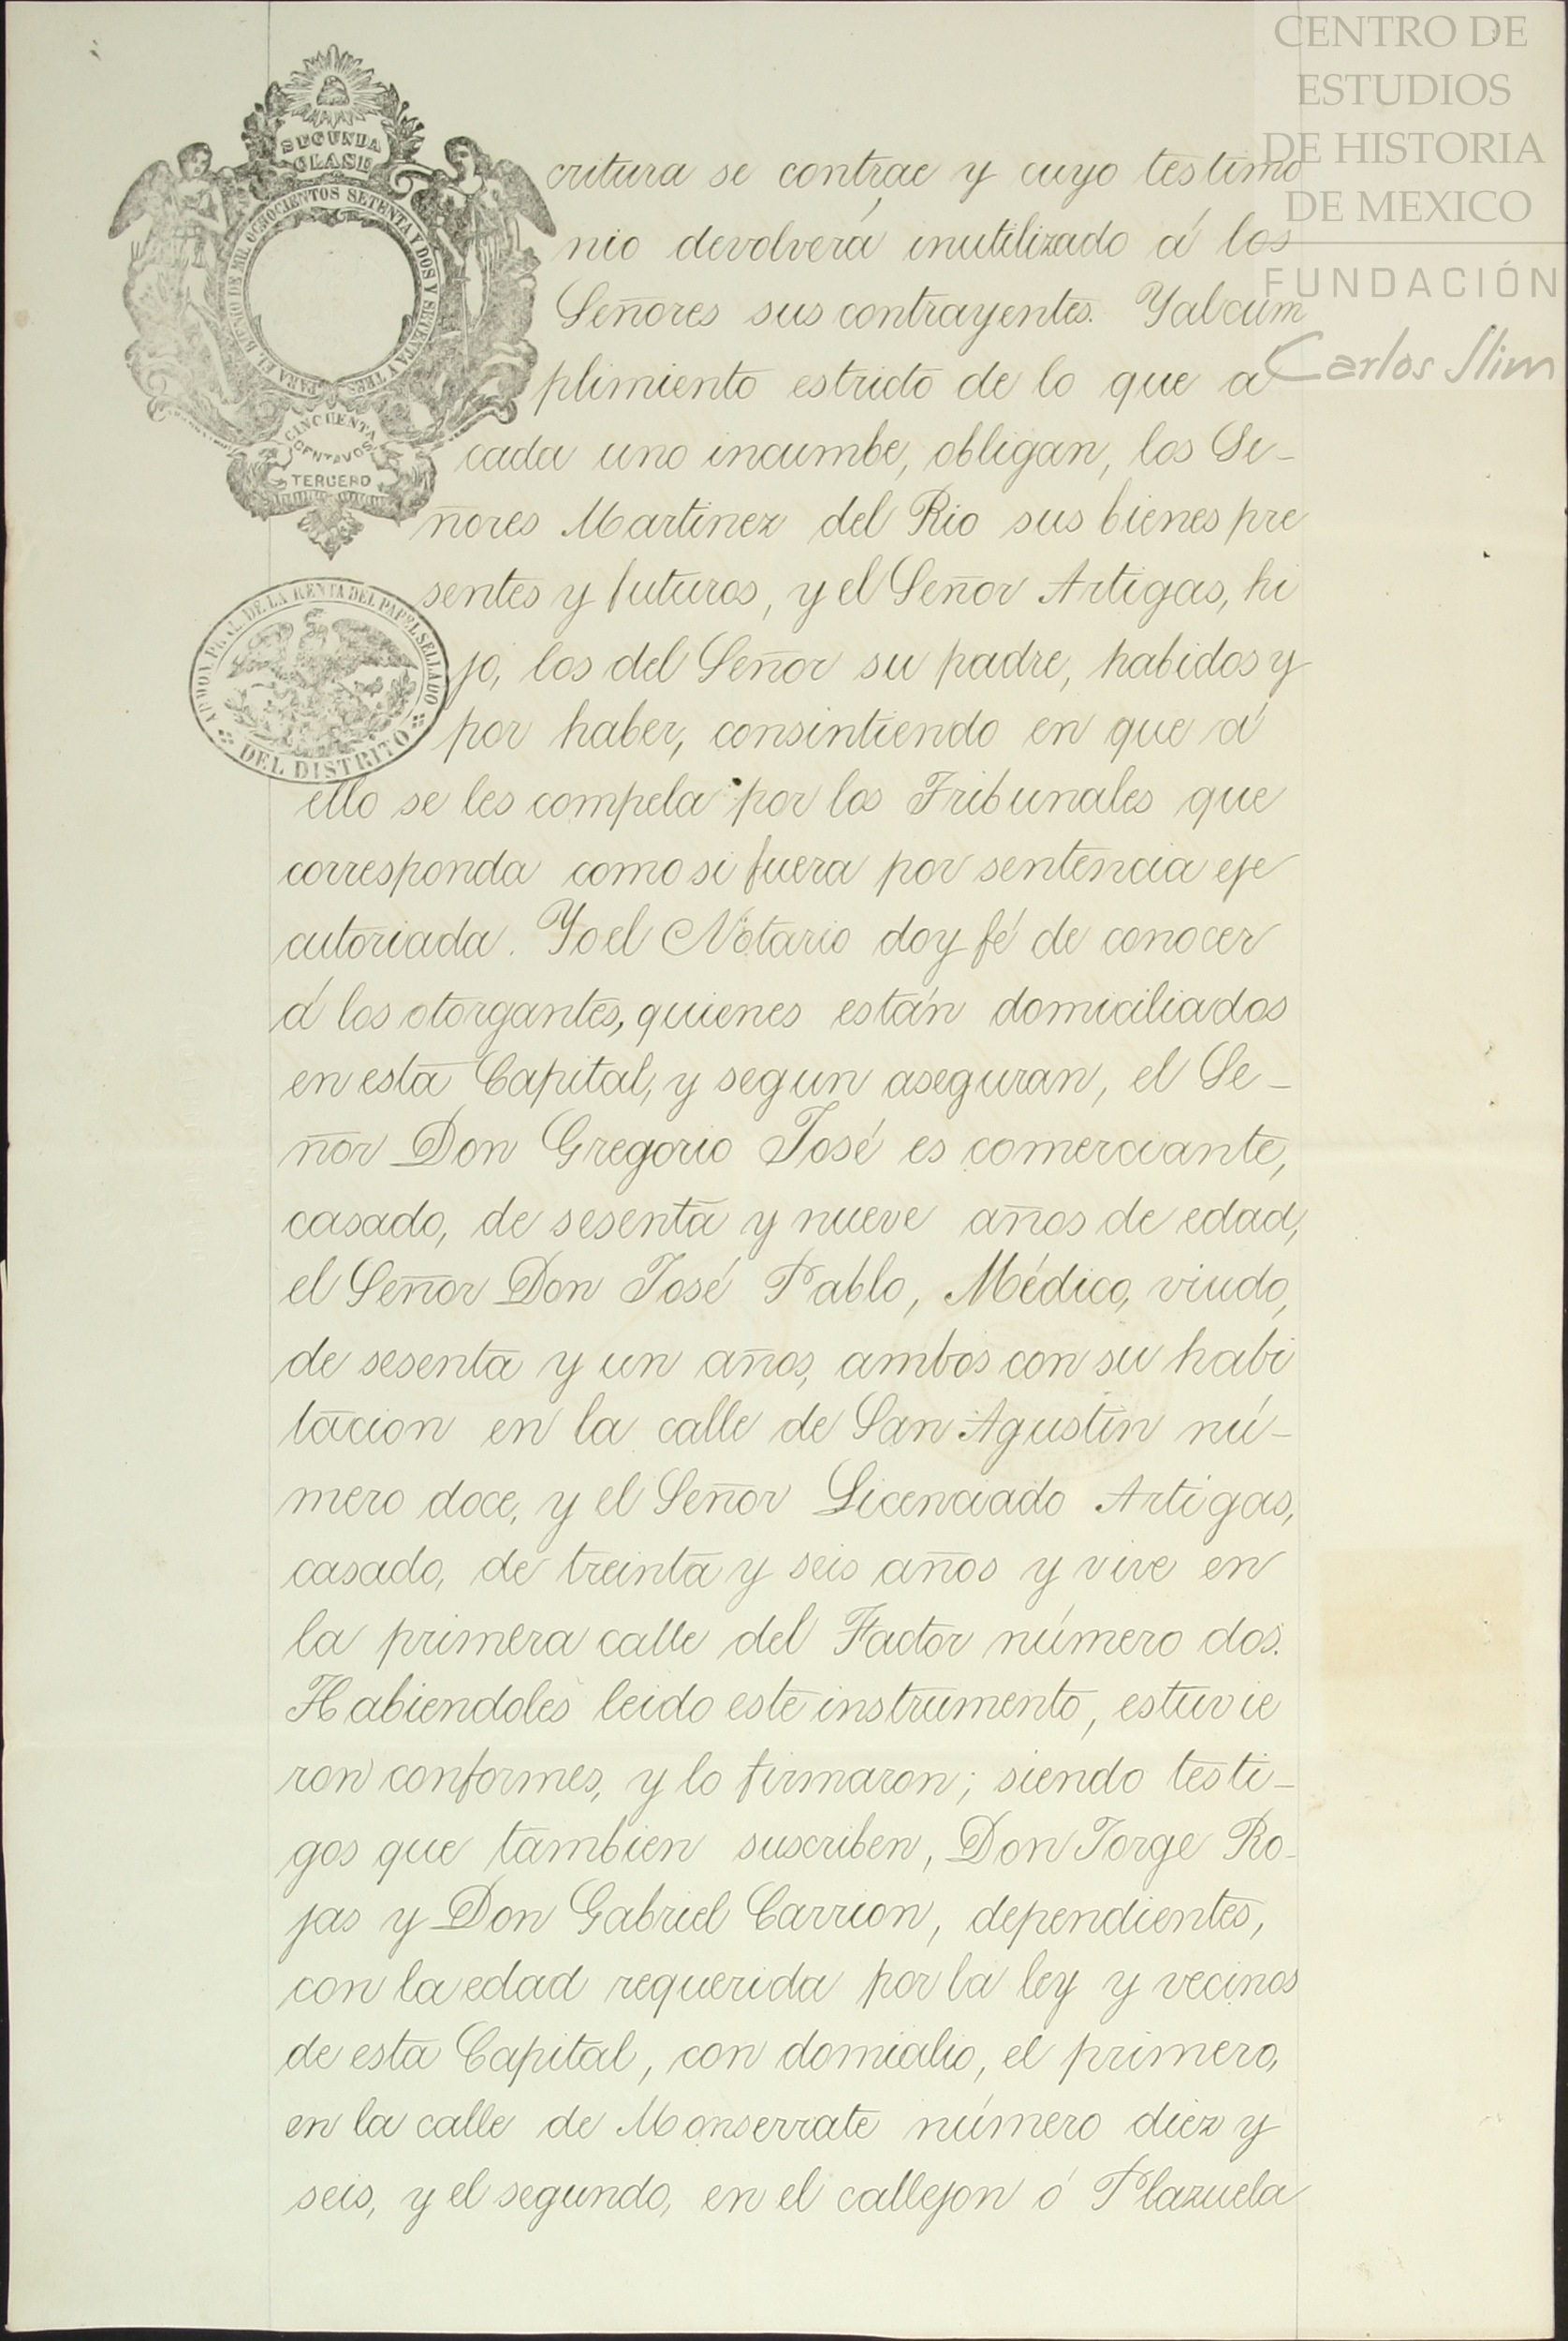 CENTRO DE
ESTUDIOS
DE HISTORIA
DE MEXICO
FUNDACIÓN
Carlos Slim
SEGUNDA
CLASE
PARA EL BIENIO DE MIL OCHOCIENTOS SETENTA Y DOS Y SETENTA Y TRES
CINCUENTA
CENTAVOS
TERCERO
ADMON. PRAL. DE LA RENTA DEL PAPEL SELLADO
DEL DISTRITO
critura se contrae y cuyo testimo
nio devolverá inutilizado á los
Señores sus contrayentes. Y al cum
plimiento estricto de lo que a
cada uno incumbe, obligan, los Se-
ñores Martinez del Rio sus bienes pre
sentes y futuros, y el Señor Artigas, hi
jo, los del Señor su padre, habidos y
por haber, consintiendo en que á
ello se les compela por los Tribunales que
corresponda como si fuera por sentencia eje
cutoriada. Yo el Notario doy fé de conocer
á los otorgantes, quienes están domiciliados
en esta Capital, y segun aseguran, el Se-
ñor Don Gregorio José es comerciante,
casado, de sesenta y nueve años de edad,
el Señor Don José Pablo, Médico, viudo,
de sesenta y un años, ambos con su habi
tacion en la calle de San Agustin nú-
mero doce, y el Señor Licenciado Artigas,
casado, de treinta y seis años y vive en
la primera calle del Factor número dos.
Habiendoles leido este instrumento, estuvie
ron conformes, y lo firmaron; siendo testi-
gos que tambien suscriben, Don Jorge Ro-
jas y Don Gabriel Carrion, dependientes,
con la edad requerida por la ley y vecinos
de esta Capital, con domicilio, el primero,
en la calle de Monserrate número diez y
seis, y el segundo, en el callejon ó Plazuela